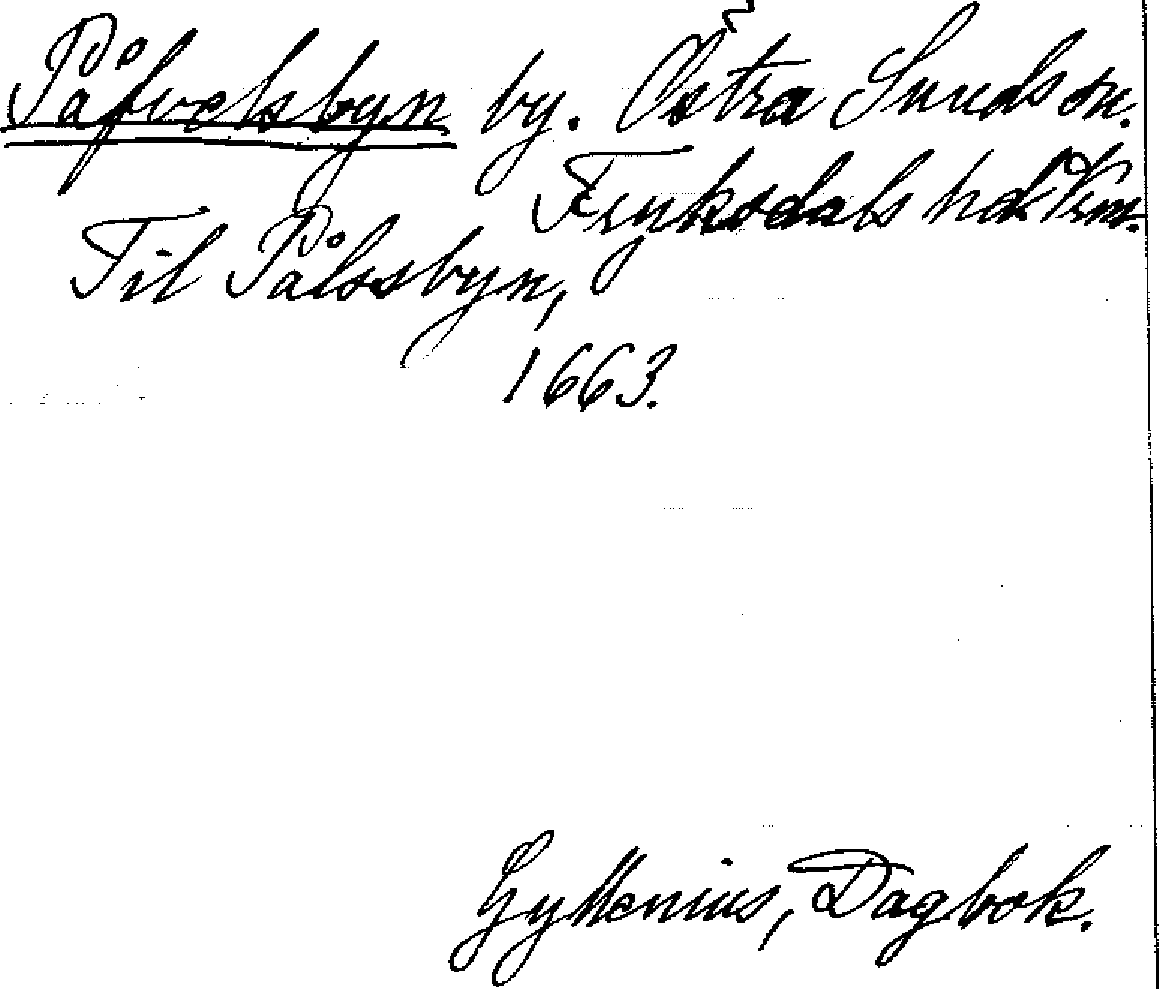 Påfvelsbyn by. Östra Sunds sn.
Fryksdals hd Vrm.
Til Pålssbyn,
1663.
Gyllenius, Dagbok.